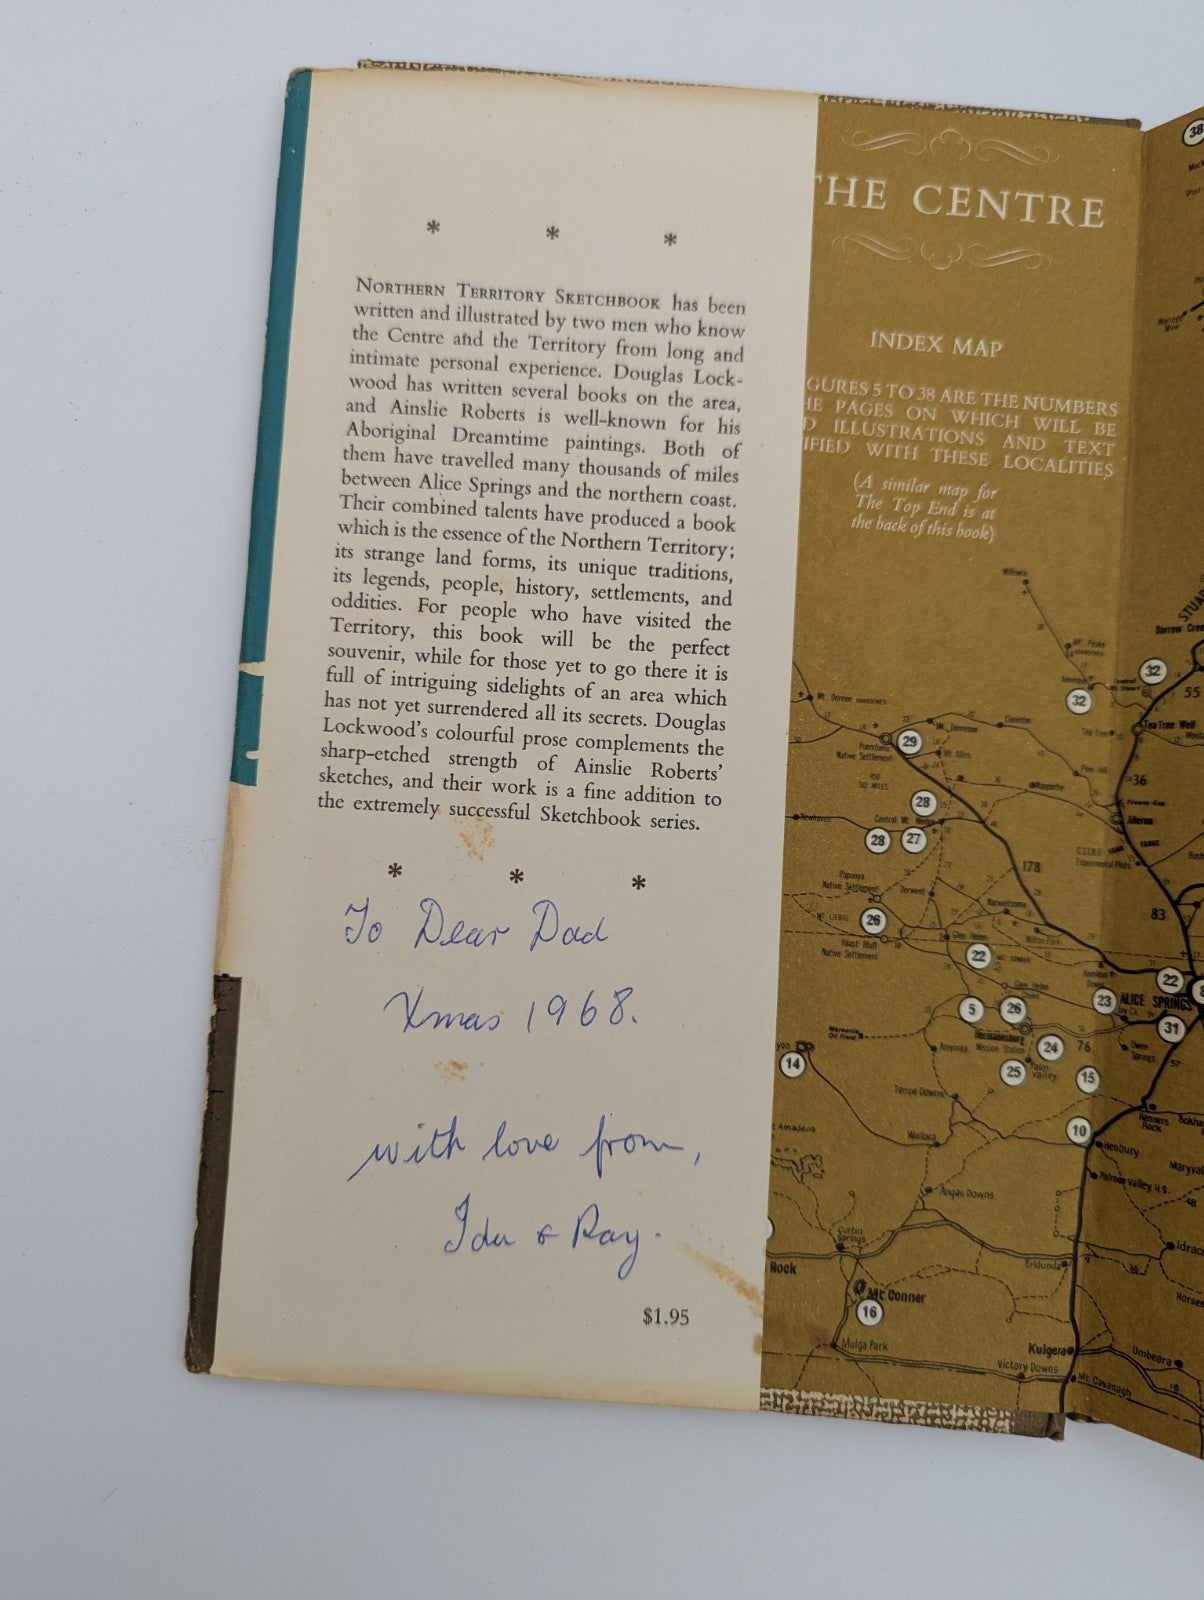 * * *
NORTHERN TERRITORY SKETCHBOOK has been
written and illustrated by two men who know
the Centre and the Territory from long and
intimate personal experience. Douglas Lock-
wood has written several books on the area,
and Ainslie Roberts is well-known for his
Aboriginal Dreamtime paintings. Both of
them have travelled many thousands of miles
between Alice Springs and the northern coast.
Their combined talents have produced a book
which is the essence of the Northern Territory;
its strange land forms, its unique traditions,
its legends, people, history, settlements, and
oddities. For people who have visited the
Territory, this book will be the perfect
souvenir, while for those yet to go there it is
full of intriguing sidelights of an area which
has not yet surrendered all its secrets. Douglas
Lockwood's colourful prose complements the
sharp-etched strength of Ainslie Roberts'
sketches, and their work is a fine addition to
the extremely successful Sketchbook series.
* * *
To Dear Dad
Xmas 1968.
with love from,
Ida & Ray.
$1.95
THE CENTRE
INDEX MAP
GURES 5 TO 38 ARE THE NUMBERS
HE PAGES ON WHICH WILL BE
D ILLUSTRATIONS AND TEXT
IFIED WITH THESE LOCALITIES
(A similar map for
The Top End is at
the back of this book)
38
Barrow Cree
32
32
55
Tea Tree Well
Mt. Doreen ABANDONED
Mt. Dennison
Coniston
Tea Tree
29
Yuendumu
Native Settlement
Mt. Allen
Pine Hill
36
Napperby
Aileron
28
Newhaven
Central Mt. Wedge
28
27
C.S.I.R.O.
Experimental Plots
178
Papunya
Native Settlement
Derwent
Narwietooma
83
MT. LIEBIG
26
Haast Bluff
Native Settlement
Glen Helen
Milton Park
22
MT. SONDER
Hamilton
Downs
22
Glen Helen
23
ALICE SPRINGS
5
26
31
Mereenie
Oil Field
Hermannsburg
Mission Station
24
76
Owen
Springs
57
14
Areyonga
25
Palm
Valley
15
Tempe Downs
Renners
Rock
10
Wallara
Henbury
Palmer Valley H.S.
Angas Downs
48
Curtin
Springs
Erldunda
Idrac
Rock
Mt. Conner
16
Mulga Park
Kulgera
Umbeara
Victory Downs
Mt. Cavanagh